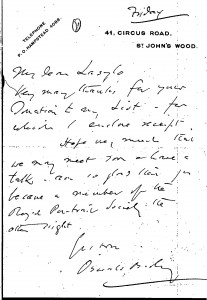 Friday
TELEPHONE
P.O. HAMPSTEAD 4088.
41, CIRCUS ROAD,
ST JOHN'S WOOD.
My dear Laszlo
Very many thanks for your
donation to my List - for
which I enclose receipt.
Hope very much that
we may meet soon & have a
talk - am so glad that you
became a member of the
Royal Portrait Society the
other night